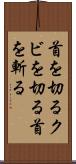 首を切るクビを切る首を斬る